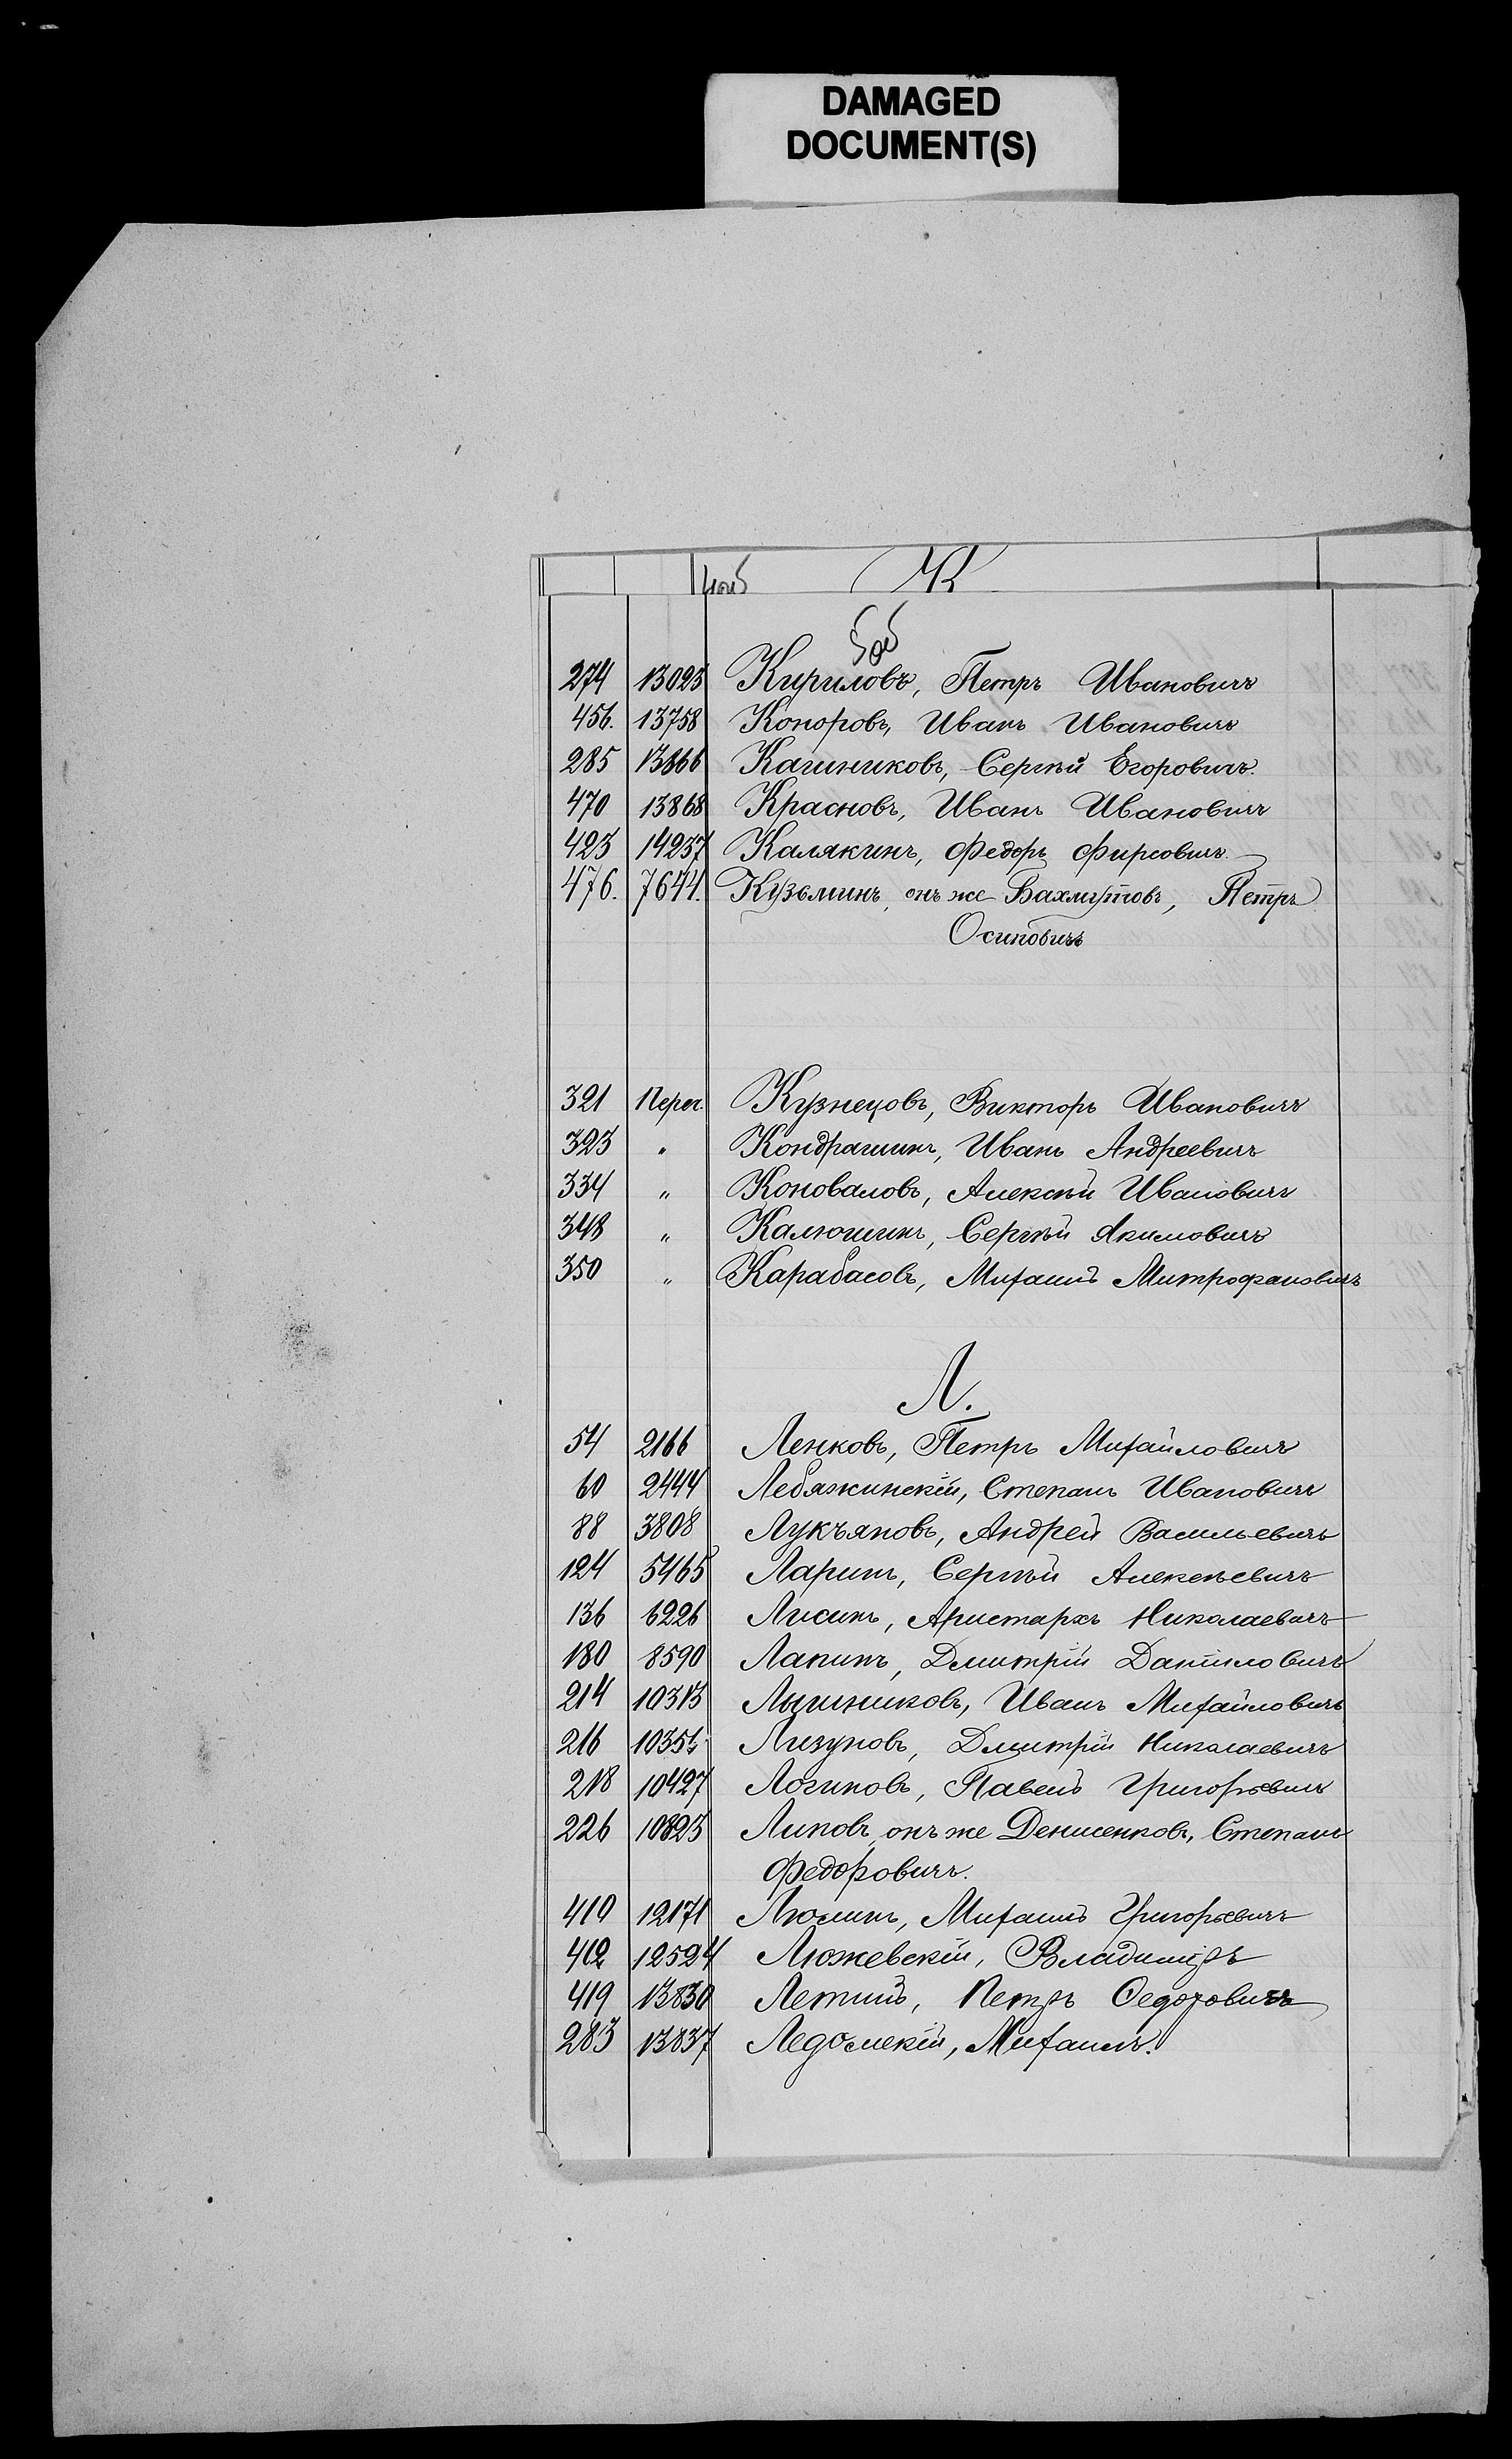 DAMAGED
DOCUMENT(S)
К
274 13023 Кириловъ, Петръ Ивановичъ
456. 13758 Коноровъ, Иванъ Ивановичъ
285 13866 Кашниковъ, Сергѣй Егоровичъ.
470 13868 Красновъ, Иванъ Ивановичъ
423 14237 Калякинъ, Федоръ Фирсовичъ.
476. 7644. Кузьминъ, онъ же Бахмутовъ, Петръ
Осиповичъ
321 Переч. Кузнецовъ, Викторъ Ивановичъ
323 " Кондрашинъ, Иванъ Андреевичъ
334 " Коноваловъ, Алексѣй Ивановичъ
348 " Калюшинъ, Сергѣй Якимовичъ
350 " Карабасовъ, Михаилъ Митрофановичъ
Л.
54 2166 Ленковъ, Петръ Михайловичъ
60 2444 Лебяжинскій, Степанъ Ивановичъ
88 3808 Лукъяновъ, Андрей Васильевичъ
124 5465 Ларинъ, Сергѣй Алексѣевичъ
136 6226 Лисинъ, Аристархъ Николаевичъ
180 8590 Лапинъ, Дмитрій Даниловичъ
214 10313 Лышниковъ, Иванъ Михайловичъ
216 10356 Лизуновъ, Дмитрій Николаевичъ
218 10427 Логиновъ, Павелъ Григорьевичъ
226 10823 Липовъ, онъ же Денисенковъ, Степанъ
Федоровичъ.
410 12171 Люлинъ, Михаилъ Григорьевичъ
412 12524 Люжевскій, Владиміръ
419 13830 Летинъ, Петръ Ѳедоровичъ
283 13837 Ледомскій, Михаилъ.